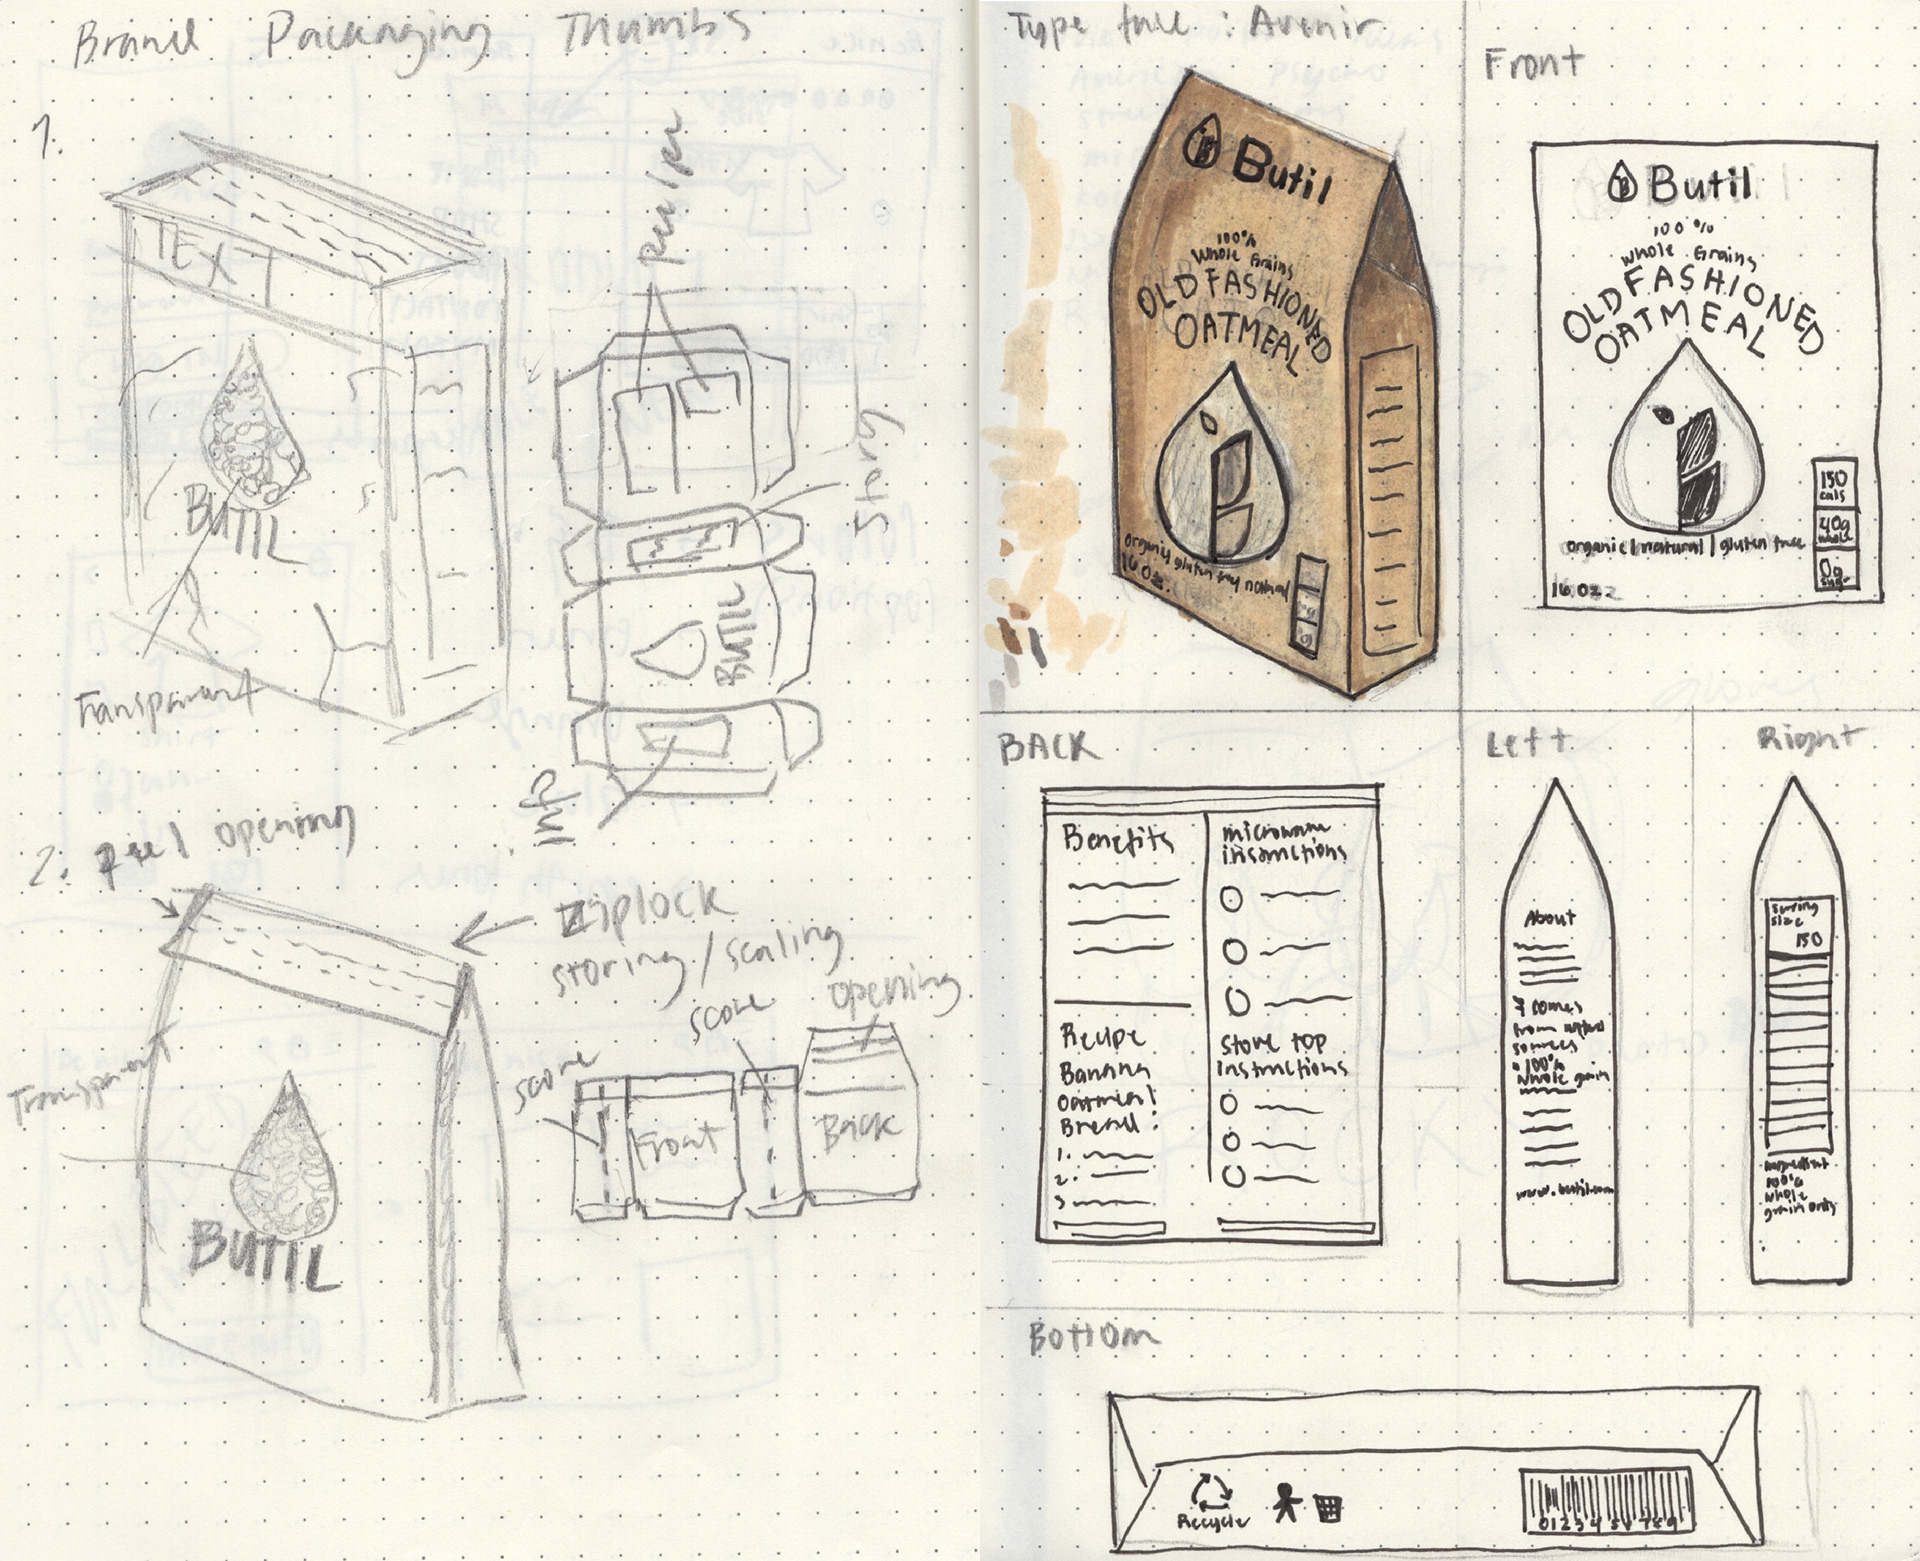 Brand Packaging Thumbs
1.
TEXT
BUTIL
Transparent
Story
BUTIL
Info
2. Peel opening
Ziplock
storing / sealing
opening
score
score
Transparent
Front
Back
BUTIL
Type face : Avenir
Butil
100%
Whole Grains
OLD FASHIONED
OATMEAL
organic gluten free natural
16 oz.
Front
Butil
100%
Whole Grains
OLD FASHIONED
OATMEAL
150
cals
40g
whole
0g
sugr
organic | natural | gluten free
16 oz
BACK
Benefits
Recipe
Banana
Oatmeal
Bread:
1.
2.
3
microwave
instructions
stove top
instructions
Left
About
comes
from
sources
100%
whole grain
www.butil.com
Right
Serving
size
150
100%
whole
grain only
Bottom
Recycle